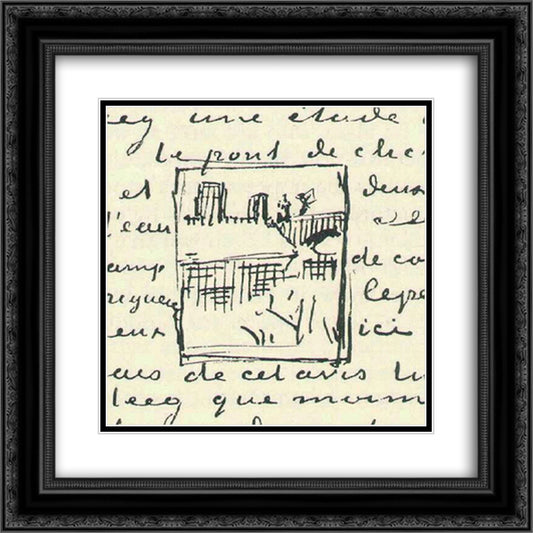 eg une étude
Le pont de che
et deux
l'eau
amp de co
rigueu lepe
eux ici
ais de cet avis
leeg que moim